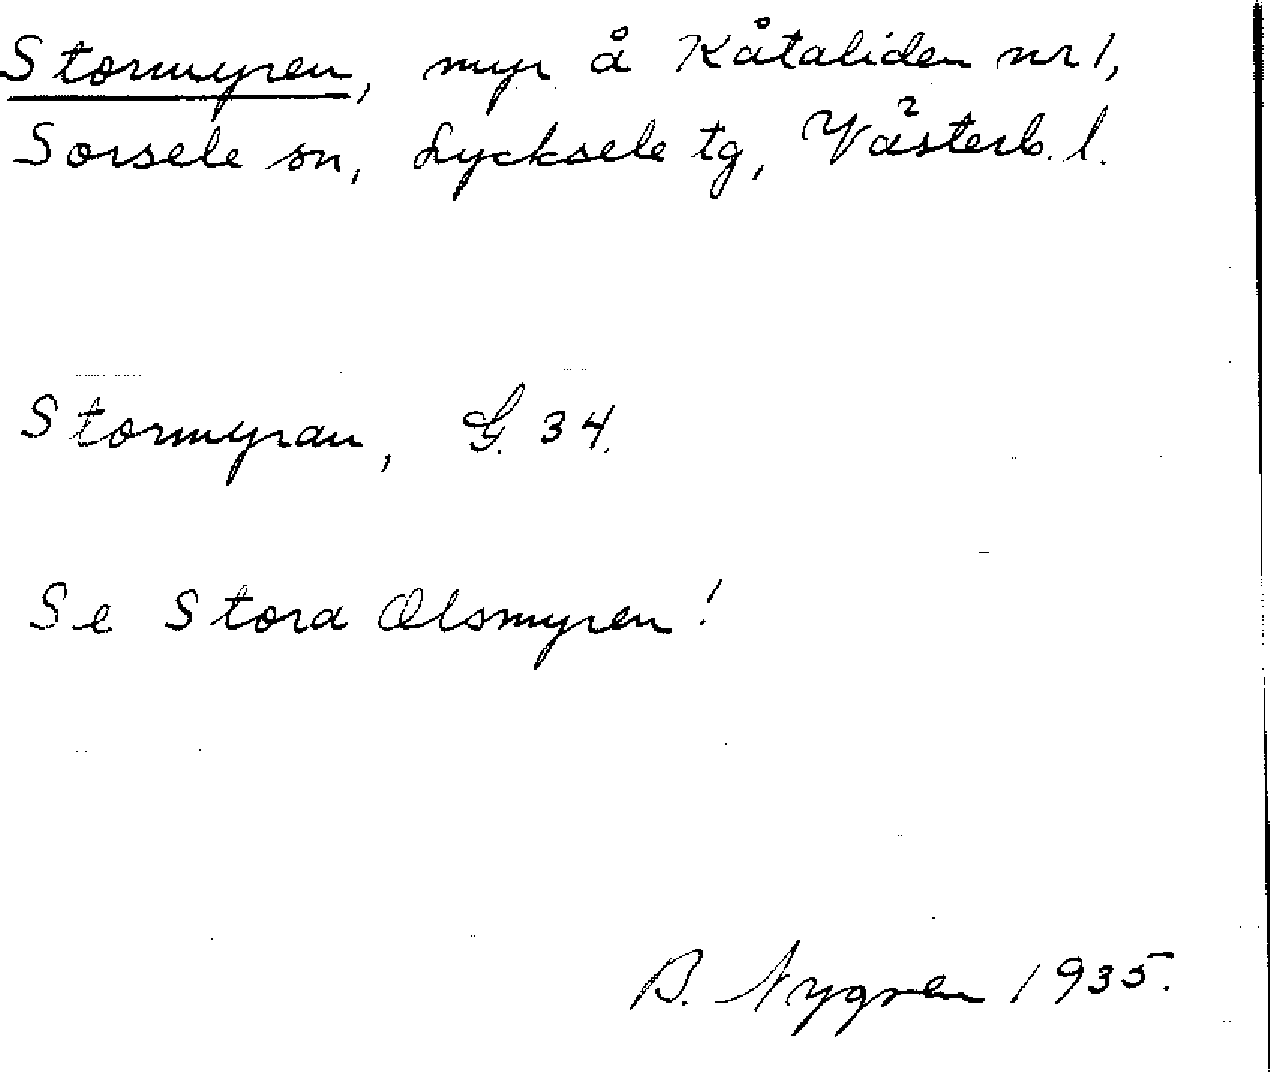 Stormyren, myr å Kåtaliden nr 1,
Sorsele sn, Lycksele tg, Västerb. l.
Stormyran, G. 34.
Se Stora Olsmyren!
B. Nygren 1935.